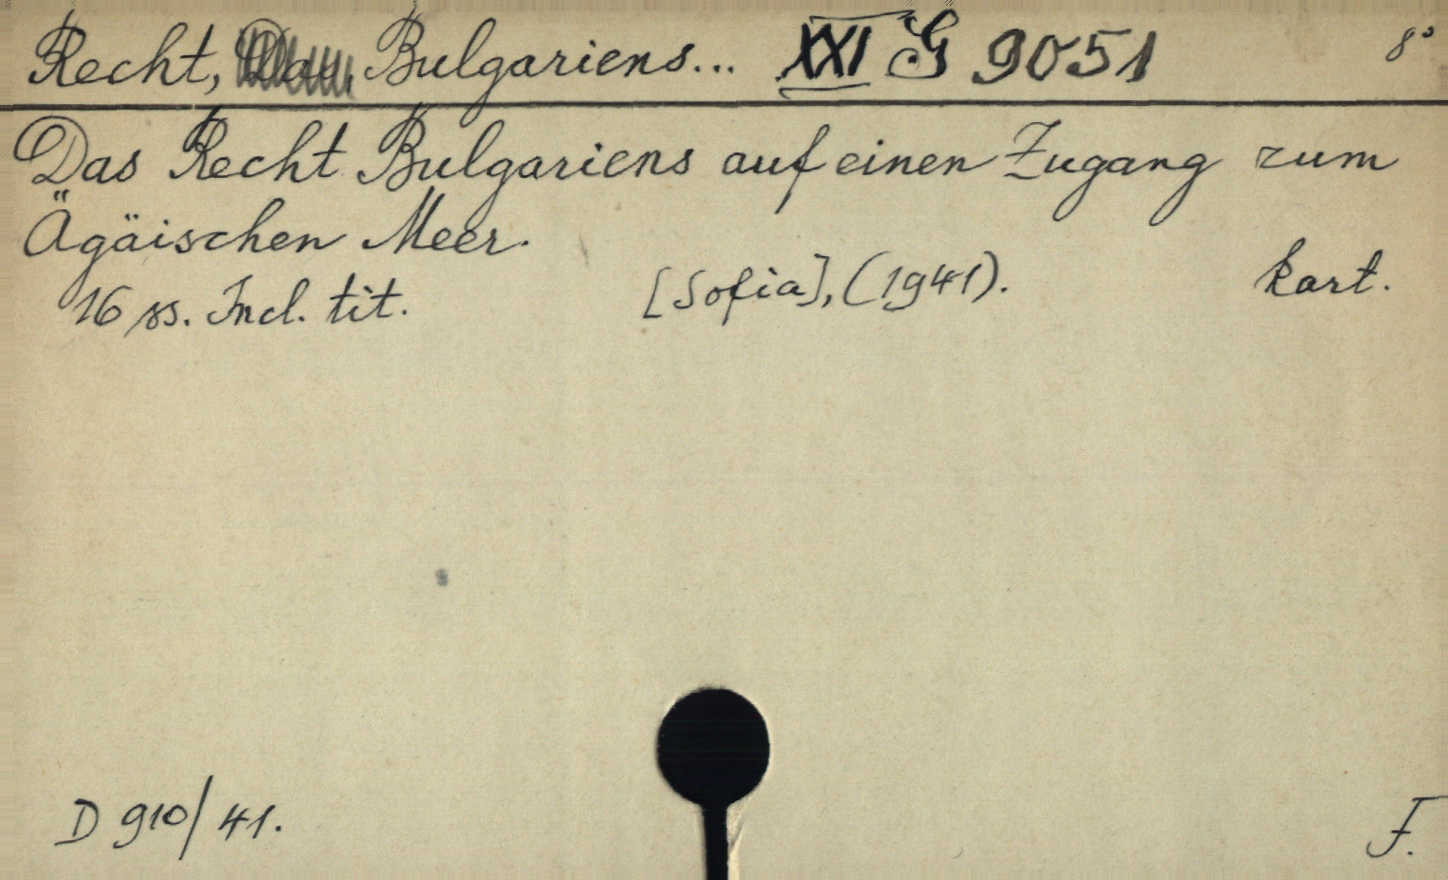 Recht, Bulgariens... XXI G 9051 8°
Das Recht Bulgariens auf einen Zugang zum
Ägäischen Meer.
16 ss. Incl. tit. [Sofia], (1941). kart.
D 910/41. F.